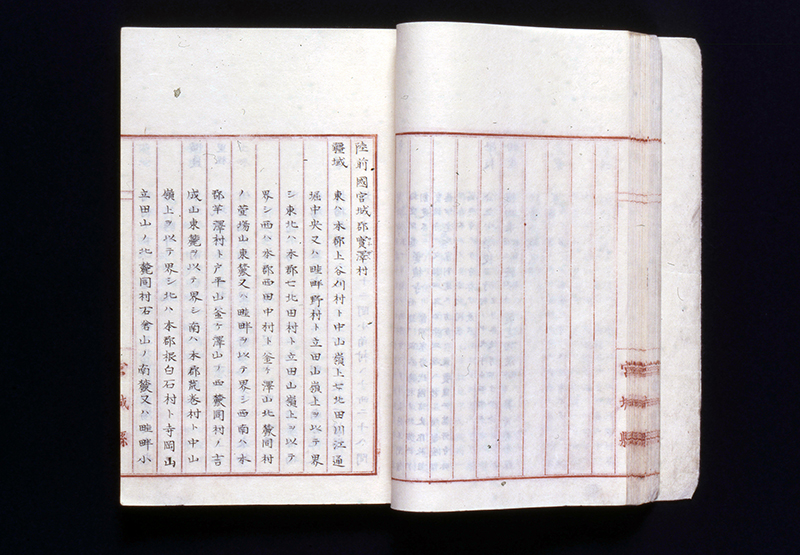 陸前國宮城郡實澤村
疆域 東ハ本郡上谷刈村ト中山嶺上七北田川江通
堀中央又ハ畦畔野村ト立田山嶺上ヲ以テ界
シ東北ハ本郡七北田村ト立田山嶺上ヲ以テ
界シ西ハ本郡西田中村ト釜ケ澤山北麓同村
ハ萱場山東麓又ハ畦畔ヲ以テ界シ西南ハ本
郡芋澤村ト戸平山釜ケ澤山ノ西麓同村ノ吉
成山東麓ヲ以テ界シ南ハ本郡荒巻村ト中山
嶺上ヲ以テ界シ北ハ本郡根白石村ト寺岡山
立田山ノ北麓同村石倉山ノ南麓又ハ畦畔小
宮城縣
宮城縣